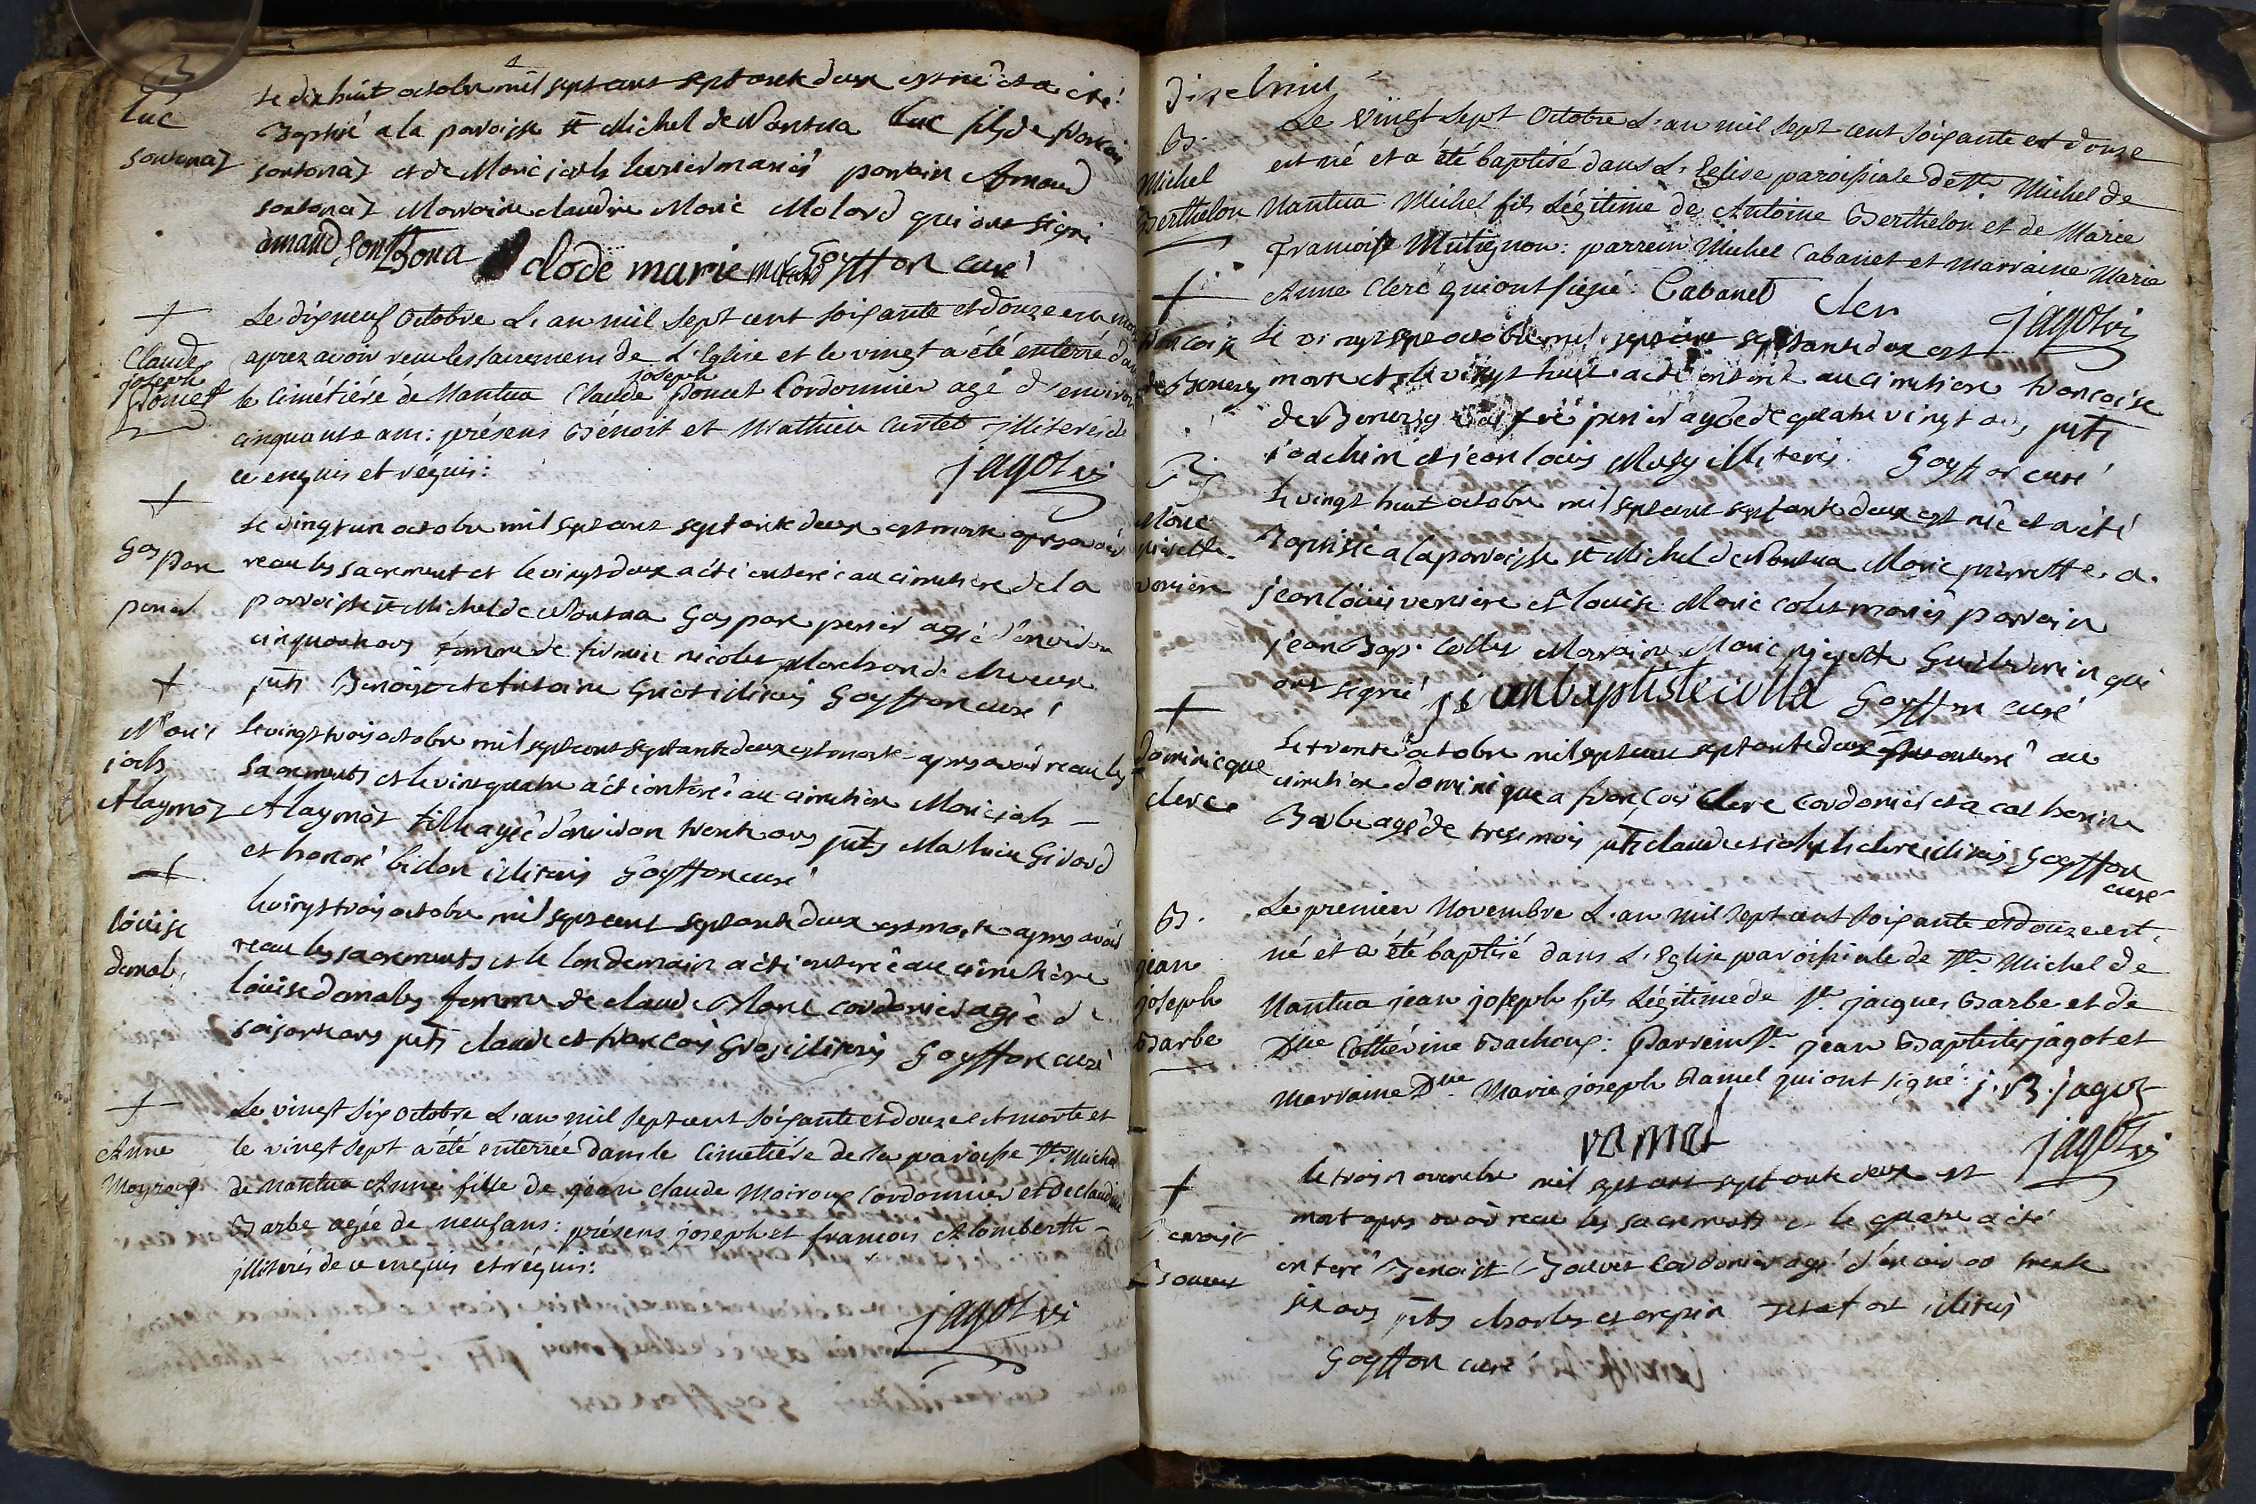 Luc
Sontonaz
Le dix huit octobre mil sept cent septante deux est né et a été
Baptisé a la paroisse st Michel de Nantua Luc fils de francois
sontonaz et de Marie mariés parrain Amand
sontonaz Marraine claudine Marie Molard qui ont signé
amand sontthona clode marie molard Goyffon curé
+
Claude
joseph
Poncet
Le dix neuf Octobre L'an mil sept cent soixante et douze est mort
aprez avoir recu les sacremens de L'Eglise et le vingt a été enterré dans
le Cimétiére de Nantua Claude joseph Poncet Cordonnier agé d'environ
cinquante ans: présens Bénoit et Mathieu Curtet jlliterés de
ce enquis et réquis:
jagot vi
+
Gaspare
perier
Le vingt un octobre mil sept cent septante deux est morte apres avoir
receu les sacrement et le vingt deux a été enterée au cimetiere de la
parroisse st Michel de Nantua Gaspare perier agée d'environ
cinquante ans femme de nicolas Marchand
pnts Benoist et Antoine iliterés Goyffon curé
+
Marie
Alaymoz
Le vingt trois octobre mil sept cent septante deux est morte apres avoir receu les
sacrements et le vingt quatre a été enterée au cimetiere Marie
Alaymoz fille agée d'environ trente ans pnts Mathieu Girard
et honoré bidon iliterés Goyffon curé
+
Louise
damaly
Le vingt trois octobre mil sept cent septante deux est morte apres avoir
receu les sacrements et le lendemain a été enterée au cimetiere
Louise femme de claude Blanc cordonier agée de
soisante ans pnts claude et francois Gros iliterés Goyffon curé
+
Anne
Moyroux
Le vingt six Octobre L'an mil sept cent soixante et douze est morte et
le vingt sept a été enterrée dans le Cimetiére de la paroisse St Michel
de Nantua Anne fille de jean claude Moiroux Cordonnier et de claudine
Barbe agée de neuf ans: présens joseph et francois Alomberth
jlliterés de ce enquis et réquis:
jagot vi
dixehuit
B.
Michel
Berthelon
Le Vingt sept Octobre L'an mil sept cent soixante et douze
est né et a été baptisé dans L'Eglise paroissiale de St. Michel de
Nantua Michel fils Légitime de Antoine Berthelon et de Marie
francoise Mutignon: parrein Michel Cabanet et marraine Marie
Anne Clerc qui ont signé: Cabanet Cler
jagot vi
+
francoise
de Beney
Le vingt sept octobre mil sept cent septante deux est
morte et le vingt huit a été enterée au cimetiere francoise
de agée de quatre vingt ans pnts
joachim et jean louis iliterés. Goyffon curé
B
Marie
pierrette
varriere
Le vingt huit octobre mil sept cent septante deux est née et a été
Baptisée a la paroisse st Michel de Nantua Marie pierrette a
jean louis verriere et louise Marie colet mariés parrain
jean Bap. Collet Marraine Marie pierrette qui
ont signé jean baptiste colla Goyffon curé
+
dominicque
clerc
Le trente octobre mil sept cent septante deux enterré au
cimetiere Dominique a francois clerc cordonier et a catherine
Barbe agé de treze mois pnts claude et joseph clerc iliterés Goyffon
curé
B.
jean
joseph
Barbe
Le premier Novembre L'an mil sept cent soixante et douze est
né et a été baptisé dans L'Eglise paroissiale de St. Michel de
Nantua jean joseph fils Légitime de Sr. jacques Barbe et de
Dlle Cathérine Bachoux: Parrein Sr. jean Baptiste jagot et
marraine Dlle. Marie joseph Ramel qui ont signé: j. B. jagot
ramel
jagot vi
+
Benoist
Bouvet
le trois novembre mil sept cent septante deux est
mort apres avoir receu les sacrements et le quatre a été
enteré Benoist Bouvet cordonier agé d'environ trente
six ans pnts charles et crepin iliterés
Goyffon curé